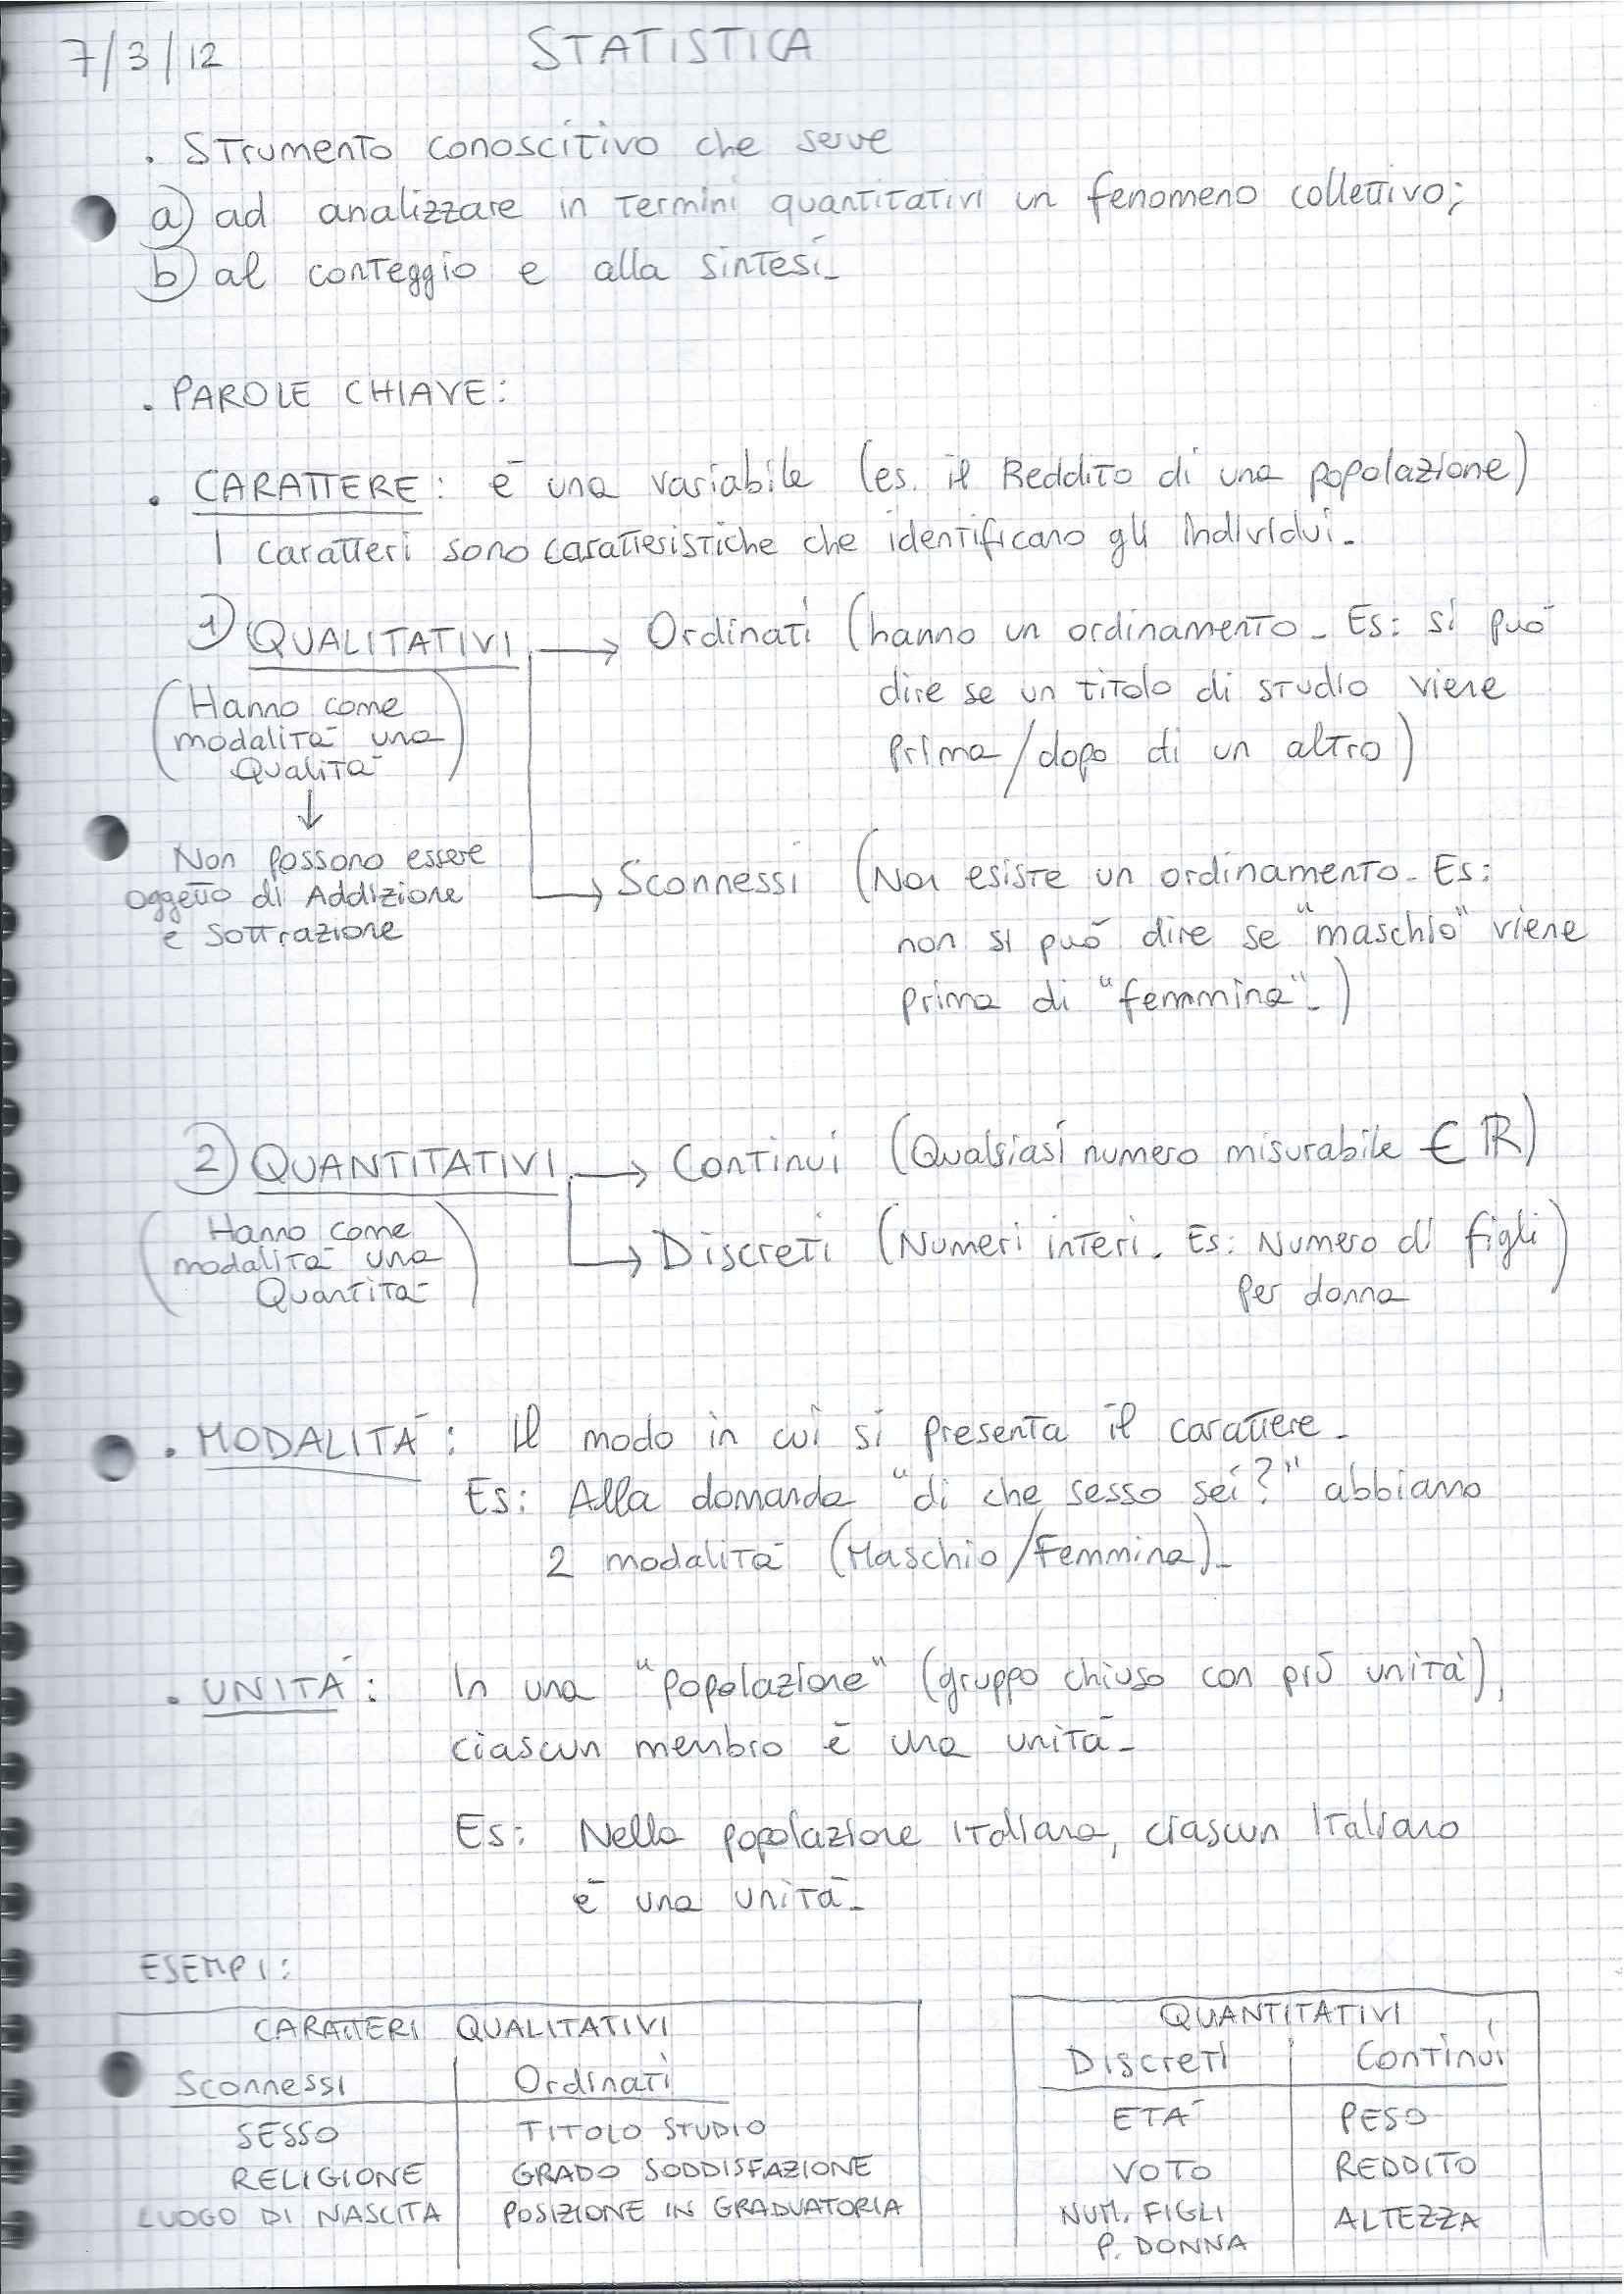 7/3/12 STATISTICA
. Strumento conoscitivo che serve
a) ad analizzare in termini quantitativi un fenomeno collettivo;
b) al conteggio e alla sintesi.
. PAROLE CHIAVE:
. CARATTERE: è una variabile (es. il Reddito di una popolazione)
I caratteri sono caratteristiche che identificano gli individui.
1) QUALITATIVI → Ordinati (hanno un ordinamento. Es: si può
dire se un titolo di studio viene
prima/dopo di un altro)
(Hanno come
modalità una
Qualità)
↓
Non possono essere
oggetto di Addizione
e Sottrazione
→ Sconnessi (Non esiste un ordinamento. Es:
non si può dire se "maschio" viene
prima di "femmina".)
2) QUANTITATIVI → Continui (Qualsiasi numero misurabile ∈ ℝ)
(Hanno come
modalità una
Quantità)
→ Discreti (Numeri interi. Es: Numero di figli
per donna)
. MODALITÀ: Il modo in cui si presenta il carattere.
Es: Alla domanda "di che sesso sei?" abbiamo
2 modalità (Maschio/Femmina).
. UNITÀ: In una "popolazione" (gruppo chiuso con più unità),
ciascun membro è una unità.
Es: Nella popolazione Italiana, ciascun Italiano
è una unità.
ESEMPI:
CARATTERI QUALITATIVI
Sconnessi Ordinati
SESSO TITOLO STUDIO
RELIGIONE GRADO SODDISFAZIONE
LUOGO DI NASCITA POSIZIONE IN GRADUATORIA
QUANTITATIVI
Discreti Continui
ETÀ PESO
VOTO REDDITO
NUM. FIGLI ALTEZZA
P. DONNA